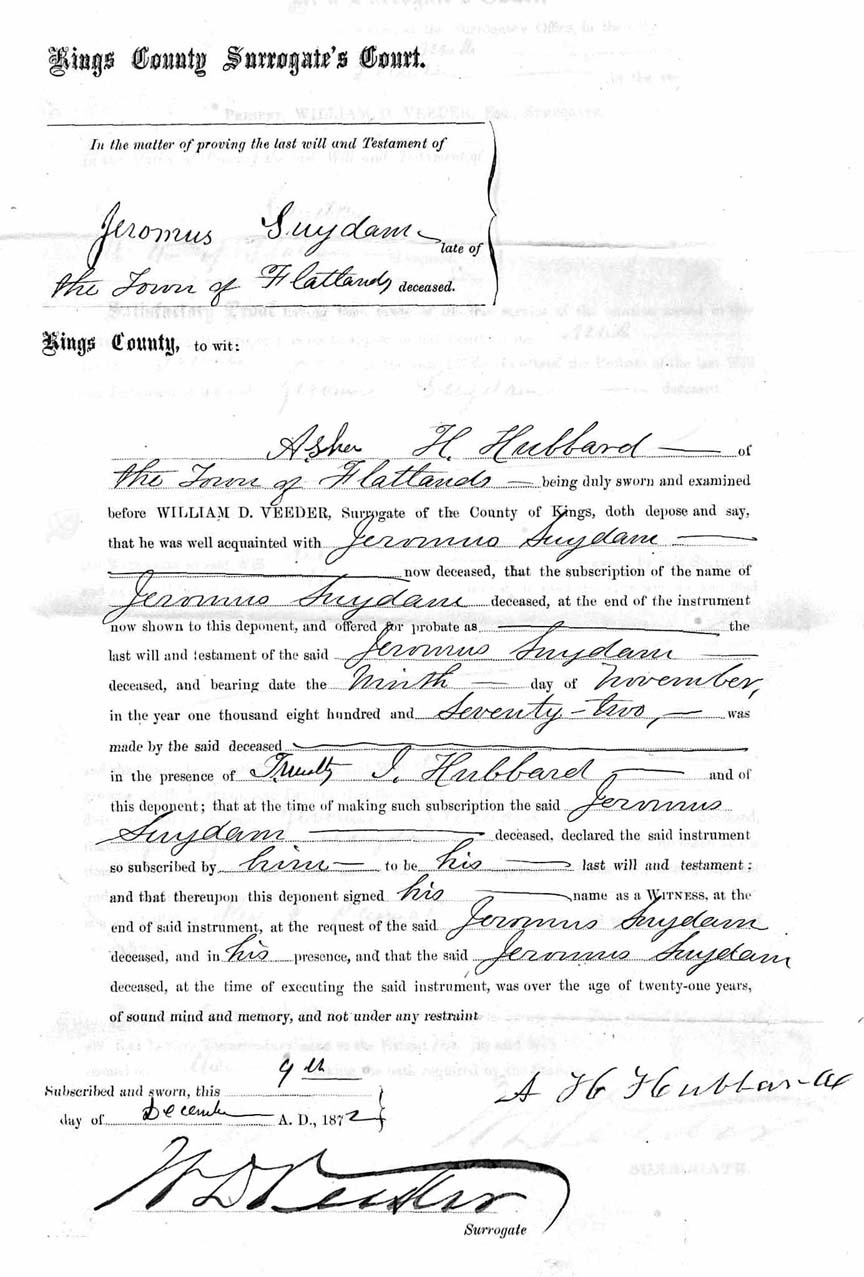 Kings County Surrogate's Court.
PRESENT, WILLIAM D. VEEDER, Esq., SURROGATE.
In the matter of proving the last will and Testament of
Jeromus Suydam late of
the Town of Flatlands deceased.
Kings County, to wit:
Asher H. Hubbard of
the Town of Flatlands being duly sworn and examined
before WILLIAM D. VEEDER, Surrogate of the County of Kings, doth depose and say,
that he was well acquainted with Jeromus Suydam
now deceased, that the subscription of the name of
Jeromus Suydam deceased, at the end of the instrument
now shown to this deponent, and offered for probate as the
last will and testament of the said Jeromus Suydam
deceased, and bearing date the Ninth day of November,
in the year one thousand eight hundred and Seventy-two, was
made by the said deceased
in the presence of I. Hubbard and of
this deponent; that at the time of making such subscription the said Jeromus
Suydam deceased, declared the said instrument
so subscribed by him to be his last will and testament;
and that thereupon this deponent signed his name as a WITNESS, at the
end of said instrument, at the request of the said Jeromus Suydam
deceased, and in his presence, and that the said Jeromus Suydam
deceased, at the time of executing the said instrument, was over the age of twenty-one years,
of sound mind and memory, and not under any restraint
Subscribed and sworn, this 9th
day of December A. D., 1872
A H Hubbard
W D Veeder
Surrogate
SURROGATE.